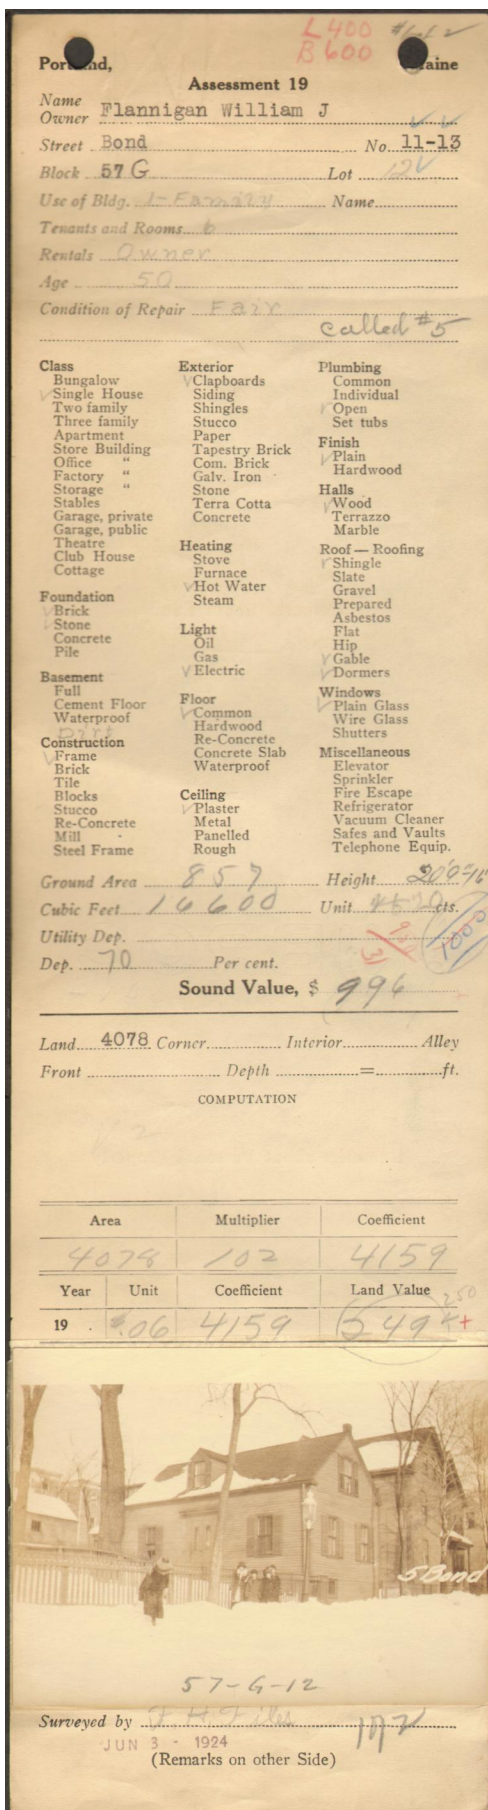 L 400 #112
B 600
Portland, Maine
Assessment 19
Name
Owner Flannigan William J
Street Bond No. 11-13
Block 57 G Lot 12
Use of Bldg. 1-Family Name
Tenants and Rooms 6
Rentals Owner
Age 50
Condition of Repair Fair
called #5
Class
Bungalow
Single House
Two family
Three family
Apartment
Store Building
Office "
Factory "
Storage "
Stables
Garage, private
Garage, public
Theatre
Club House
Cottage
Foundation
Brick
Stone
Concrete
Pile
Basement
Full
Cement Floor
Waterproof
Dirt
Construction
Frame
Brick
Tile
Blocks
Stucco
Re-Concrete
Mill
Steel Frame
Exterior
Clapboards
Siding
Shingles
Stucco
Paper
Tapestry Brick
Com. Brick
Galv. Iron
Stone
Terra Cotta
Concrete
Heating
Stove
Furnace
Hot Water
Steam
Light
Oil
Gas
Electric
Floor
Common
Hardwood
Re-Concrete
Concrete Slab
Waterproof
Ceiling
Plaster
Metal
Panelled
Rough
Plumbing
Common
Individual
Open
Set tubs
Finish
Plain
Hardwood
Halls
Wood
Terrazzo
Marble
Roof — Roofing
Shingle
Slate
Gravel
Prepared
Asbestos
Flat
Hip
Gable
Dormers
Windows
Plain Glass
Wire Glass
Shutters
Miscellaneous
Elevator
Sprinkler
Fire Escape
Refrigerator
Vacuum Cleaner
Safes and Vaults
Telephone Equip.
Ground Area 857 Height
Cubic Feet 16600 Unit cts.
1000
Utility Dep.
Dep. 70 Per cent.
Sound Value, $ 996
Land 4078 Corner Interior Alley
Front Depth = ft.
COMPUTATION
Area Multiplier Coefficient
4078 102 4159
Year Unit Coefficient Land Value 250
19 . $.06 4159 249 +
5 Bond
57-G-12
Surveyed by F. H. Files
JUN 3 - 1924
(Remarks on other Side)